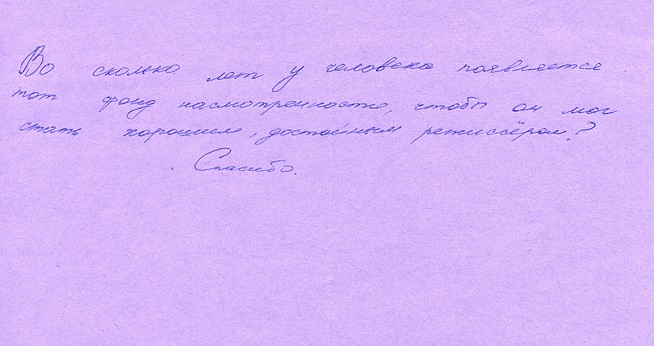 Во сколько лет у человека появляется
тот фонд насмотренности, чтобы он мог
стать хорошим, достойным режиссёром?
Спасибо.